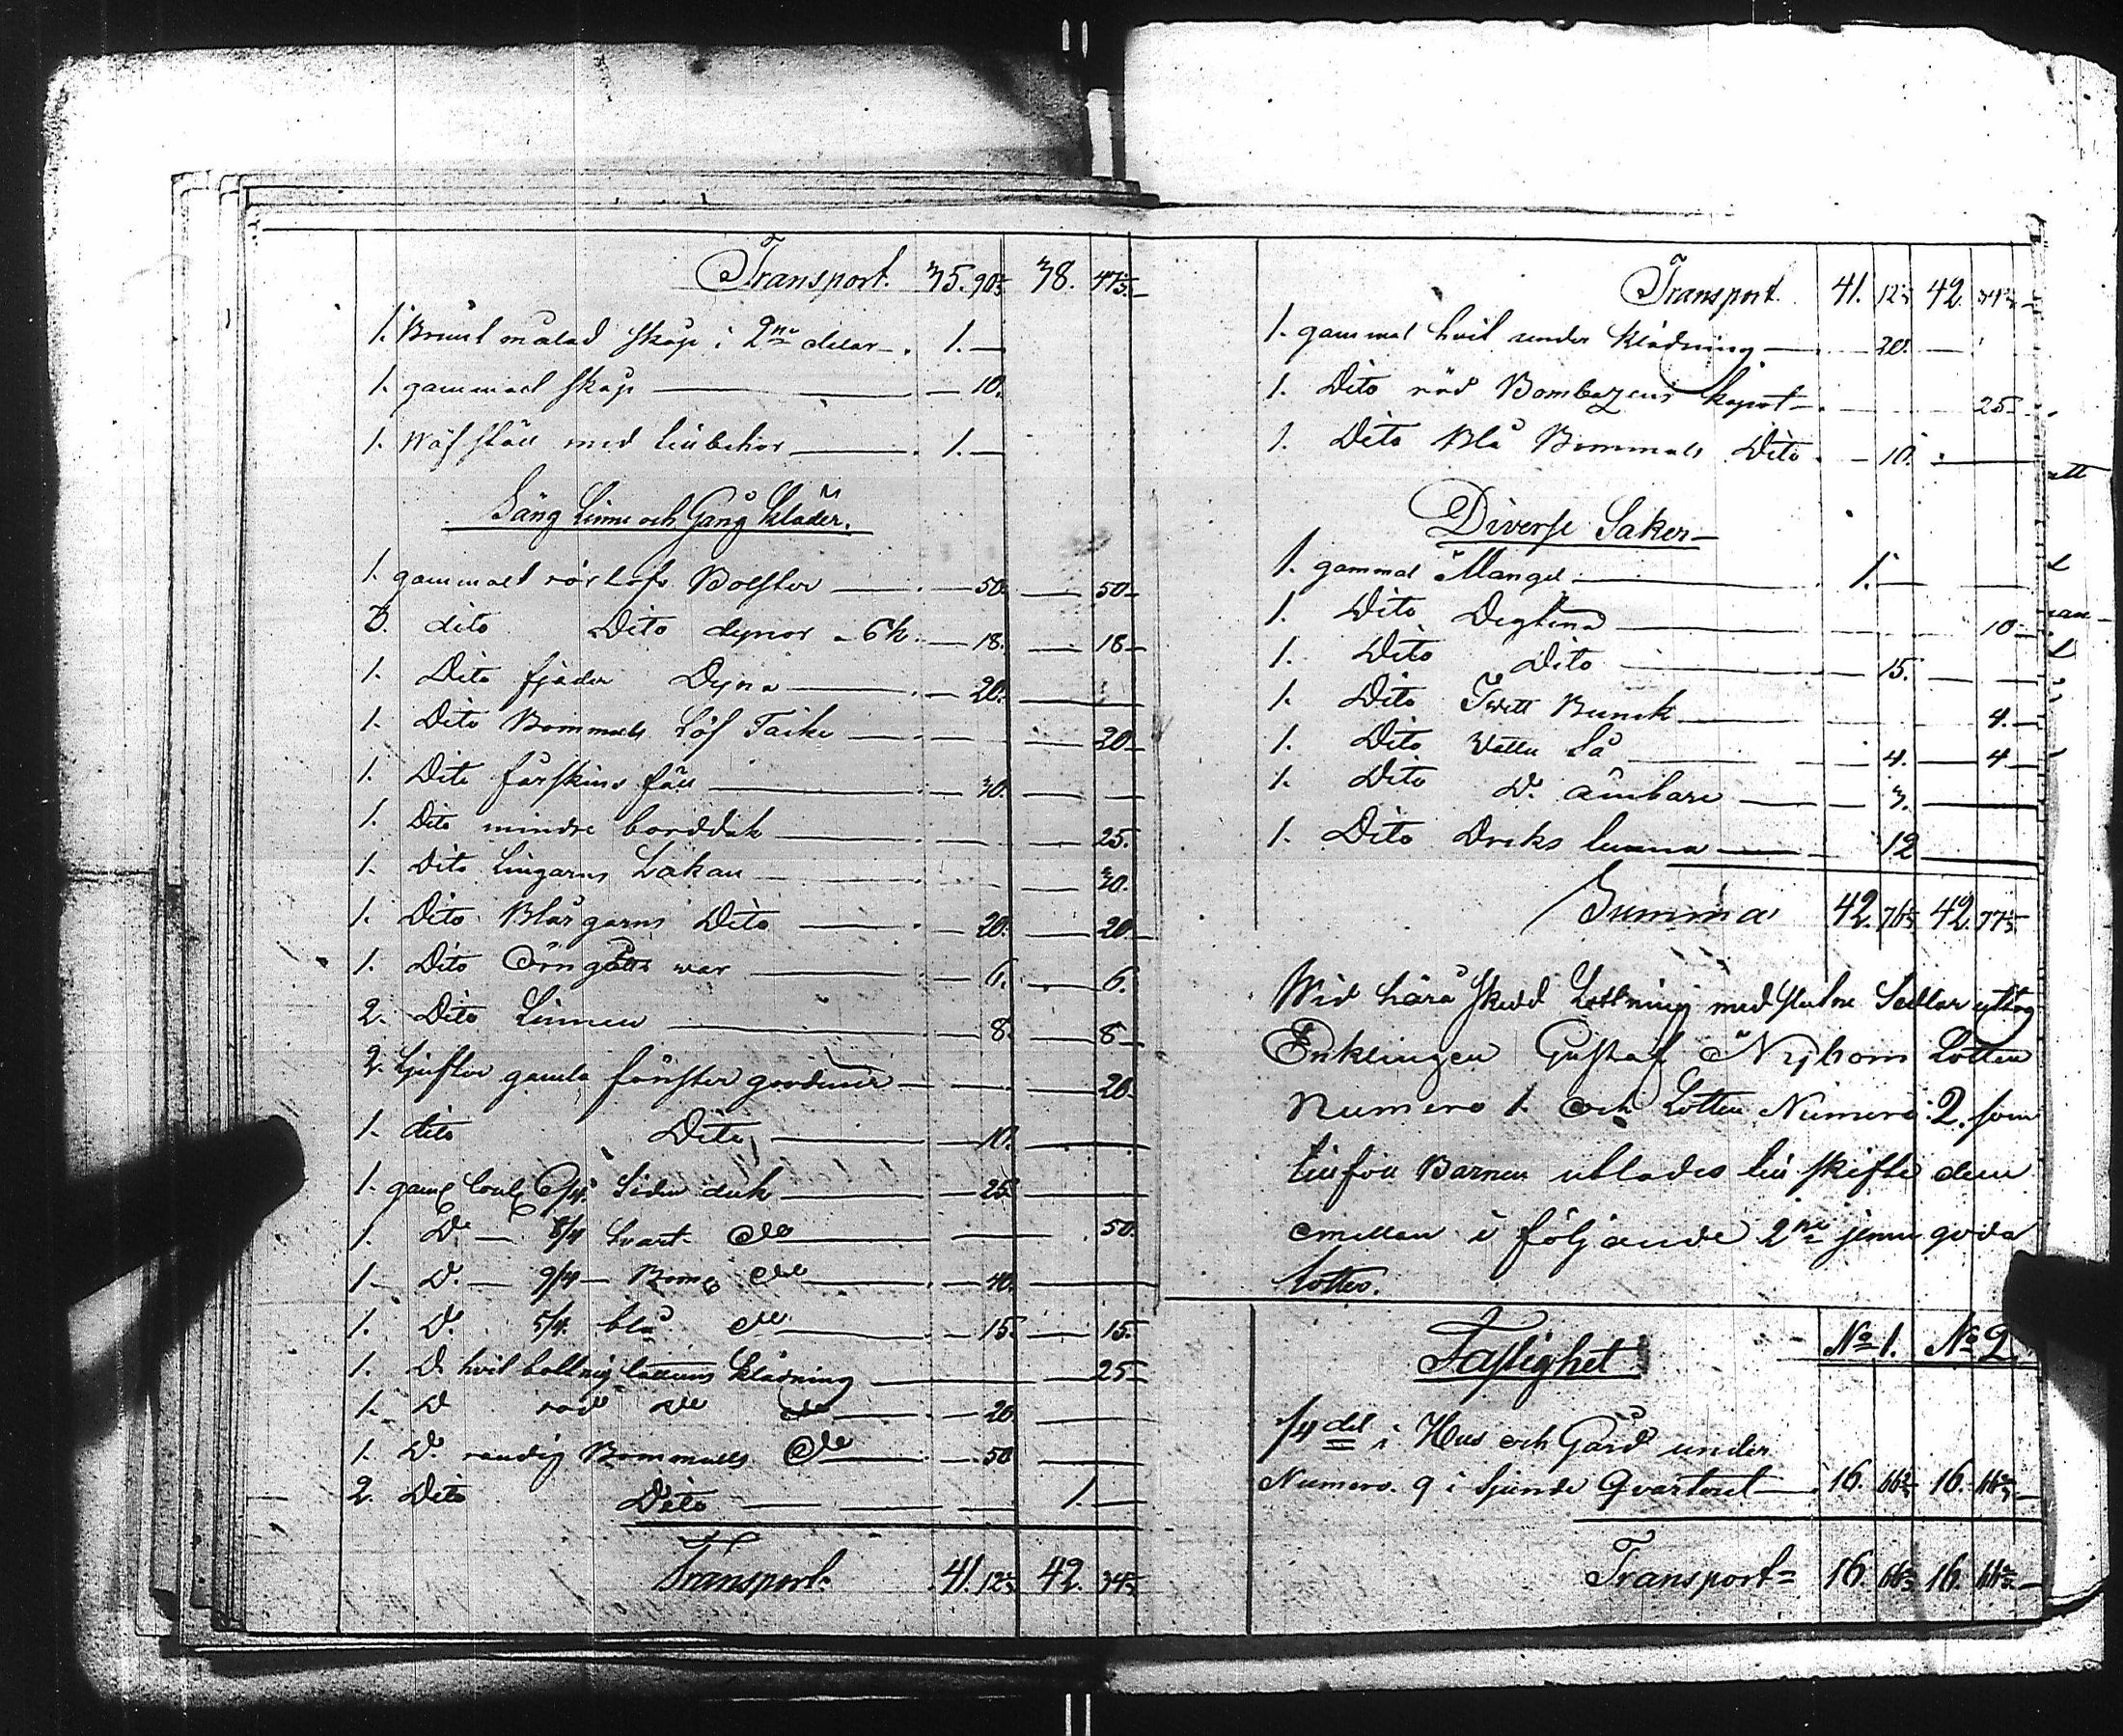 Transport. 35. 90 38. 47
1. Brunt målad skåp i 2ne delar 1.
1. gammalt skåp 10.
1. Wäfställ med tillbehör 1.
Säng Linne och Gång Kläder.
1. gammalt Bolster 50. 50
3. dito Dito dynor a 6 k. 18. 18
1. Dito fjäder Dyna 20.
1. Dito Bommulls Täcke 20
1. Dito fårskins fäll 30.
1. Dito mindre bordduk 25.
1. Dito Lingarns Lakan 30.
1. Dito Blårgarns Dito 20. 20
1. Dito Örngåtts war 6. 6.
2. Dito Linnen 8. 8
2. Luftor gamla fönster gardiner 20.
1. dito Dito 10.
1. gam 6/4 Siden duk 25
1. Do 8/4 svart do 50.
1. D. 9/4 Bom do 40.
1. D. 5/4 blå do 15. 15.
1. D. hvit Klädning 25
1. D röd do do 20
1. D. randig Bommulls do 50
2. Dito Dito 1.
Transport. 41. 12 42. 34
Transport. 41. 12 42. 34
1. gammal hvit under klädning 20.
1. Dito röd Bombazens kapot 25
1. Dito Blå Bommulls Dito 10.
Diverse Saker
1. gammal Mangel 1.
1. Dito Degtina 10
1. Dito Dito 15.
1. Dito Twätt Bunck 4.
1. Dito Vattu Så 4. 4
1. Dito D. ämbare 3.
1. Dito Driks kanna 12
Summa 42. 76 42. 77
Wid härå skedd Lottning med slutne Sedlar uttog
Enklingen Gustaf Nybom Lotten
Numero 1. och Lotten Numero 2. som
tillföll Barnen utlades till skifte dem
emellan i följande 2ne jemngoda
lotter.
Fastighet No 1. No 2
1/4 del i Hus och Gård under
Numero. 9 i Sjunde Qvarteret 16. 66 16. 66
Transport 16. 66 16. 66